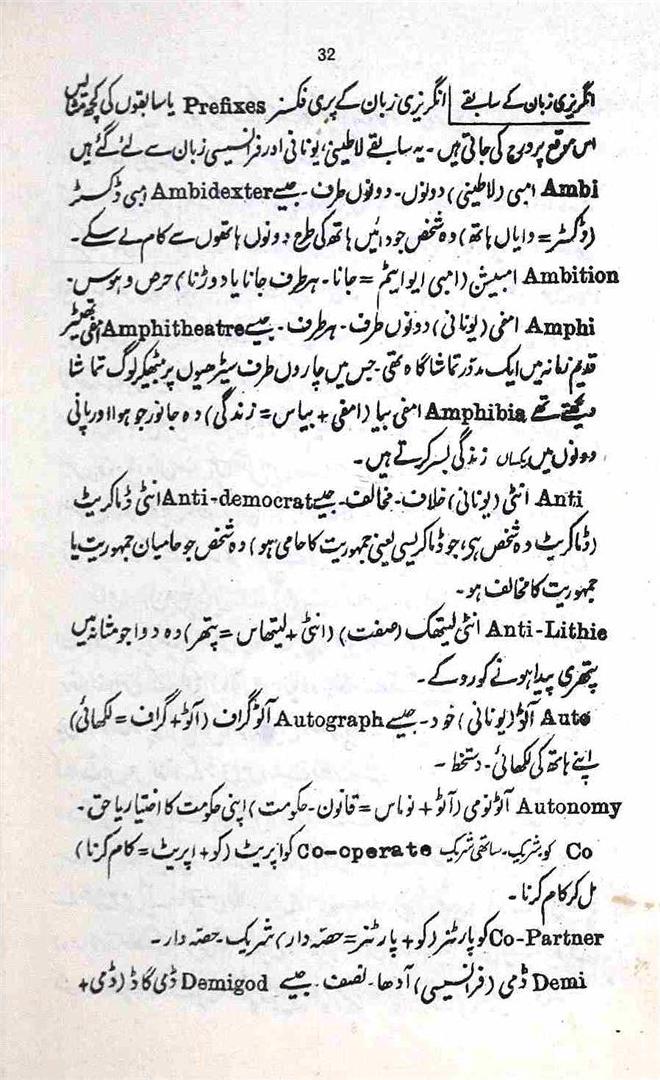 32
انگریزی زبان کے سابقے | انگریزی زبان کے پری فکسز Prefixes یا سابقوں کی کچھ مثالیں
اس موقع پر درج کی جاتی ہیں۔ یہ سابقے لاطینی، یونانی اور فرانسیسی زبان سے لئے گئے ہیں
Ambi امبی (لاطینی) دونوں۔ دونوں طرف۔ جیسے Ambidexter امبی ڈکسٹر
(ڈکسٹر = دایاں ہاتھ) وہ شخص جو دائیں ہاتھ کی طرح دونوں ہاتھوں سے کام لے سکے۔
Ambition امبیشن (امبی ایو ایٹم = جانا۔ ہر طرف جانا یا دوڑنا) حرص و ہوس۔
Amphi امفی (یونانی) دونوں طرف۔ ہر طرف۔ جیسے Amphitheatre امفی تھیٹر
قدیم زمانہ میں ایک مدور تماشا گاہ تھی۔ جس میں چاروں طرف سیڑھیوں پر بیٹھکر لوگ تماشا
دیکھتے تھے Amphibia امفی بیا (امفی + بیاس = زندگی) وہ جانور جو ہوا اور پانی
دونوں میں یکساں زندگی بسر کرتے ہیں۔
Anti انٹی (یونانی) خلاف۔ مخالف۔ جیسے Anti-democrat انٹی ڈماکریٹ
(ڈماکریٹ وہ شخص ہے، جو ڈماکریسی یعنی جمہوریت کا حامی ہو) وہ شخص جو حامیان جمہوریت یا
جمہوریت کا مخالف ہو۔
Anti-Lithie انٹی لیتھک (صفت) (انٹی + لیتھاس = پتھر) وہ دوا جو مثانہ میں
پتھری پیدا ہونے کو روکے۔
Auto آٹو (یونانی) خود۔ جیسے Autograph آٹو گراف (آٹو + گراف = لکھائی)
اپنے ہاتھ کی لکھائی۔ دستخط۔
Autonomy آٹونومی (آٹو + نوماس = قانون۔ حکومت) اپنی حکومت کا اختیار یا حق۔
Co کو شریک۔ ساتھی شریک Co-operate کواپریٹ (کو + اپریٹ = کام کرنا)
مل کر کام کرنا۔
Co-Partner کو پارٹنر (کو + پارٹنر = حصہ دار) شریک۔ حصہ دار۔
Demi ڈمی (فرانسیسی) آدھا۔ نصف۔ جیسے Demigod ڈمی گاڈ (ڈمی +